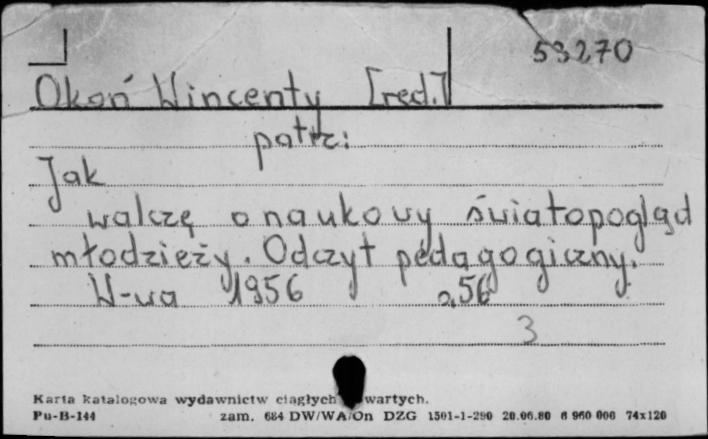 53270
Okoń Wincenty [red.]
patrz:
Jak
walczę o naukowy światopogląd
młodzieży. Odczyt pedagogiczny.
W-wa 1956 56
3
Karta katalogowa wydawnictw ciągłych wartych.
Pu-B-144 zam. 684 DW/WA/On DZG 1501-1-290 20.06.80 6 960 000 74x120